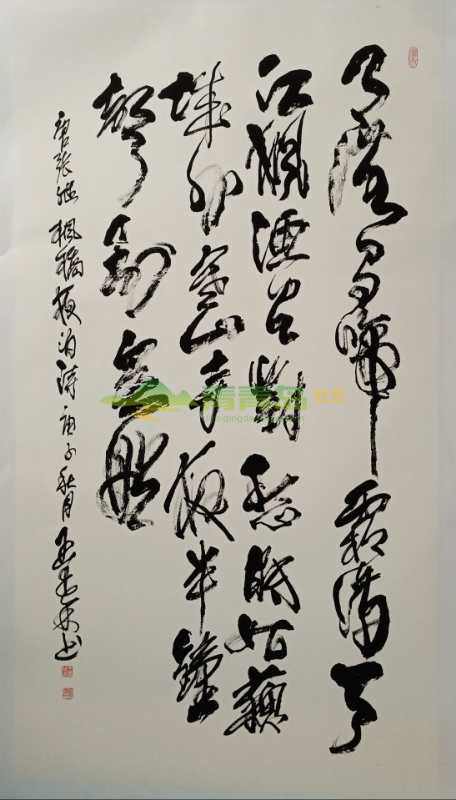 月落烏啼霜滿天
江楓漁火對愁眠姑蘇
城外寒山寺夜半鐘
聲到客船
唐張繼楓橋夜泊詩庚子秋月
青青岛社区